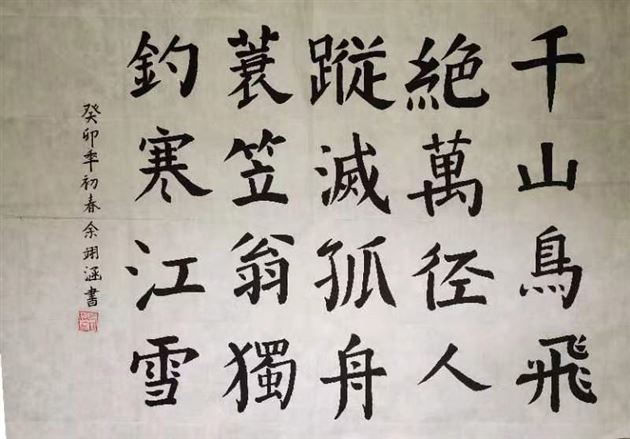 千山鳥飛
絶萬径人
蹤滅孤舟
蓑笠翁獨
釣寒江雪
癸卯年初春余翊涵書